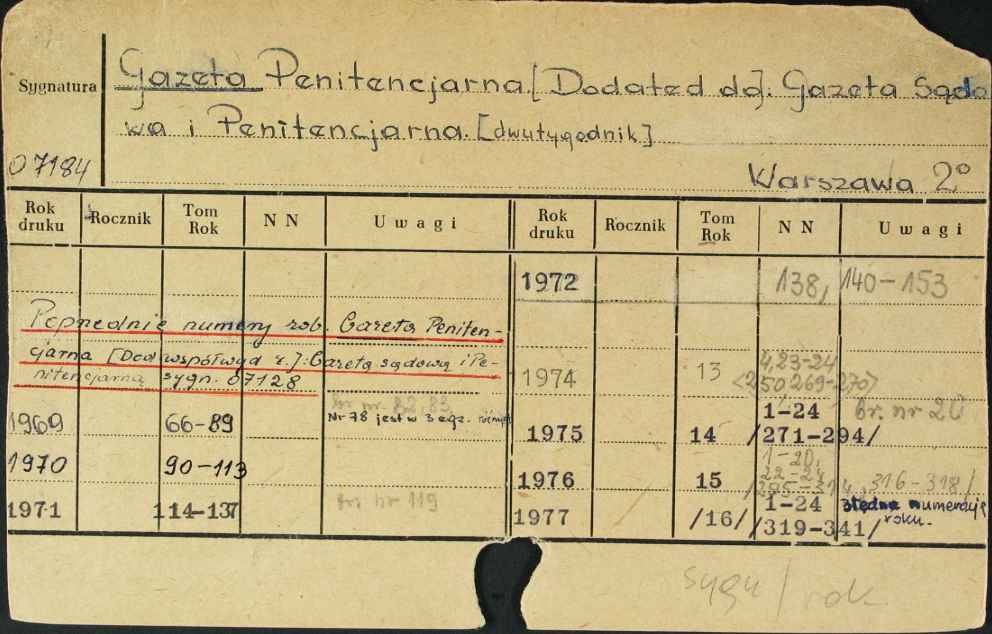 Sygnatura
Gazeta Penitencjarna. [Dodated do]. Gazeta Sądo
wa i Penitencjarna. [dwutygodnik]
07184
Warszawa 2°
Rok druku Rocznik Tom Rok NN Uwagi Rok druku Rocznik Tom Rok NN Uwagi
1972 138, 140-153
Poprzednie numery zob. Gazeta Peniten-
cjarna [Dod współwyd z.] Gazetą sądową i Pe-
nitencjarną sygn. 07128
1974 13 4,23-24
<250 269-270>
1969 66-89 br nr 82,83
Nr 78 jest w 3 egz.
1975 14 1-24 br. nr 20
/271-294/
1970 90-113
1976 15 1-20,
22-24
/295-314, 316-318/
1971 114-137 br nr 119
1977 /16/ 1-24 błędna numeracja
/319-341/ roku.
sygn / rok